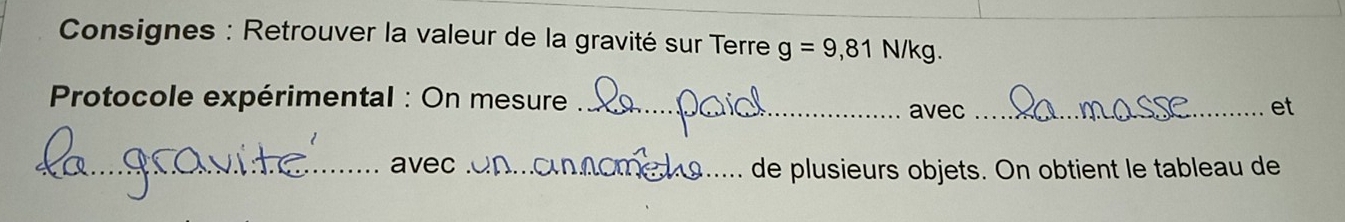 Consignes : Retrouver la valeur de la gravité sur Terre g = 9,81 N/kg.
Protocole expérimental : On mesure le paid avec la masse et
la gravité avec un de plusieurs objets. On obtient le tableau de